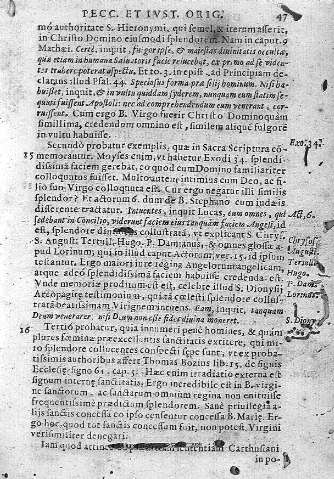 PECC. ET IVST. ORIG. 47
mò authoritate S. Hieronymi, qui semel, & iterum asserit,
in Christo Domino eiusmodi splendorem. Nam in caput 9
Mathæi. Certè, inquit, fulgor ipse, & maiestas diuinitatis occultæ,
quæ etiam in humana Saluatoris facie relucebat, ex primo ad se viden-
tes trahere poterat aspectu. Et to. 3. in epist. ad Principiam de-
clarans illud Psal. 44. Speciosus forma præ filijs hominum. Nisi ha-
buisset, inquit, & in vultu quiddam sydereum, nunquam eum statim se-
quuti fuissent Apostoli: nec ad comprehendendum eum venerant, cor-
ruissent. Cum ergo B. Virgo fuerit Christo Domino quàm
simillima, credendum omnino est, similem aliquē fulgorē
in vultu habuisse.
Secundò probatur exemplis, quæ in Sacra Scriptura cō- Exo. 34.
15 memorantur. Moyses enim, vt habetur Exodi 34. splendi-
dissima faciem gerebat, eo quod cum Domino familiariter
colloquutus fuisset. Multo autem intimius cum Deo, ac fi-
lio suo Virgo colloquuta est. Cur ergo negatur illi similis
splendor? Et actorum 6. dum de B. Stephano cum iudæis
disserente tractatur. Intuentes, inquit Lucas, eum omnes, qui Act. 6.
sedebant in Concilio, viderunt faciem eius tanquam faciem Angeli, id
est, splendore collustratā, vt explicant S. Chrys. Chrysos.
S. August. Tertull. Hugo. P. Damianus, & omnes glossæ a- August.
pud Lorinum, qui in illud caput Actorum, ver. 15. id ipsum Tertull.
testantur. Ergo maiori iure regina Angelorum angelicam, Hugo.
atque adeò splendidissima faciem habuisse credenda est. P. Dam.
Vnde memoriæ proditum est, celebre illud S. Dionysij Lorinus.
Areopagitæ testimonium, qui tā cœlesti splendore collus-
tratā beatissimam Virginem intuens. Eam, inquit, tanquam S. Diony.
Deum venerarer, nisi Deum non esse fides diuina moneret.
16 Tertiò probatur, quia innumeri penè homines, & quàm
plures fœminæ præexcellentis sanctitatis extitere, qui mi-
ro splendore collucentes conspecti sæpe sunt, vt ex proba-
tissimis authoribus affert Thomas Bozius lib. 15. de signis
Ecclesiæ signo 61. cap. 5. Hæc enim irradiatio externa est
signum internæ sanctitatis. Ergo incredibile est in B. virgi-
ne sanctorum, ac sanctarum omnium regina non enituisse
frequentissimè prædictum splendorem. Sanè priuilegia a-
lijs sanctis concessa eo ipso censentur concessa B. Mariæ. Er-
go hoc quod tot sanctis concessum fuit, non potest Virgini
verisimiliter denegari.
Iam quod attinet sententiam Carthusiani
in po-